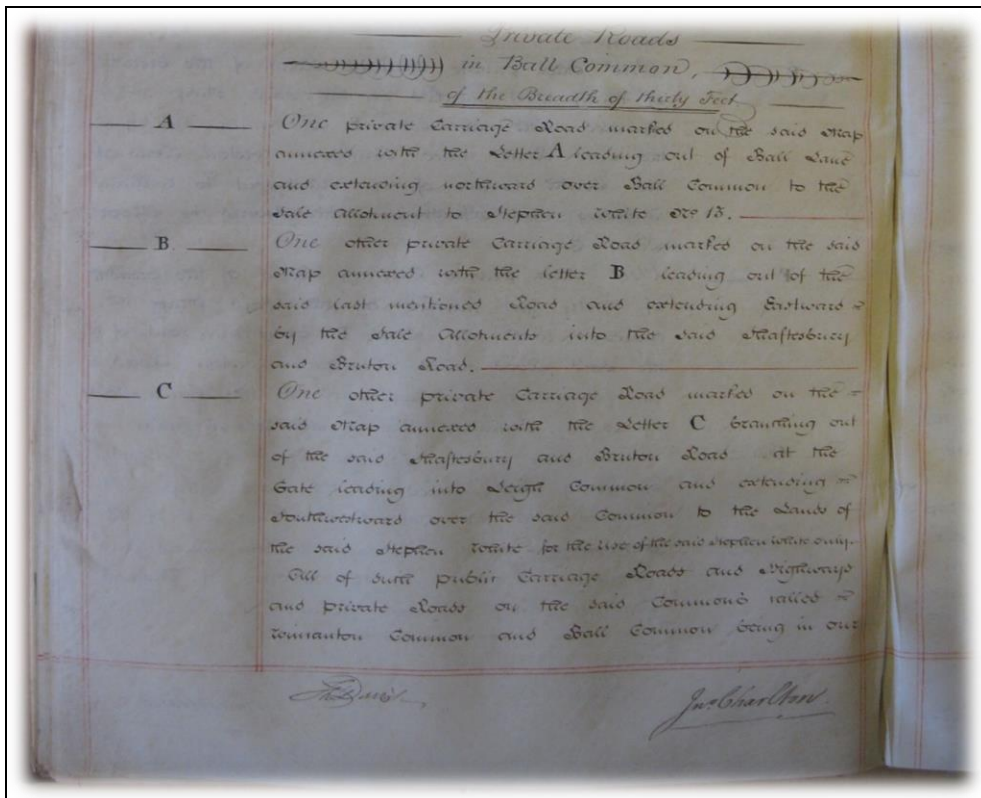 Private Roads
in Ball Common,
of the Breadth of thirty Feet
A One private Carriage Road marked on the said Map
annexed with the Letter A leading out of Ball Lane
and extending northward over Ball Common to the
Sale Allotment to Stephen White No 13.
B One other private Carriage Road marked on the said
Map annexed with the letter B leading out of the
said last mentioned Road and extending Eastward
by the Sale Allotments into the said Shaftesbury
and Bruton Road.
C One other private Carriage Road marked on the
said Map annexed with the Letter C branching out
of the said Shaftesbury and Bruton Road at the
Gate leading into Leigh Common and extending
Southwestward over the said Common to the Lands of
the said Stephen White for the Use of the said Stephen White only.
All of such public Carriage Roads and Highways
and private Roads on the said Commons called
Common and Ball Common being in our
Thos Davis
Jno Charlton